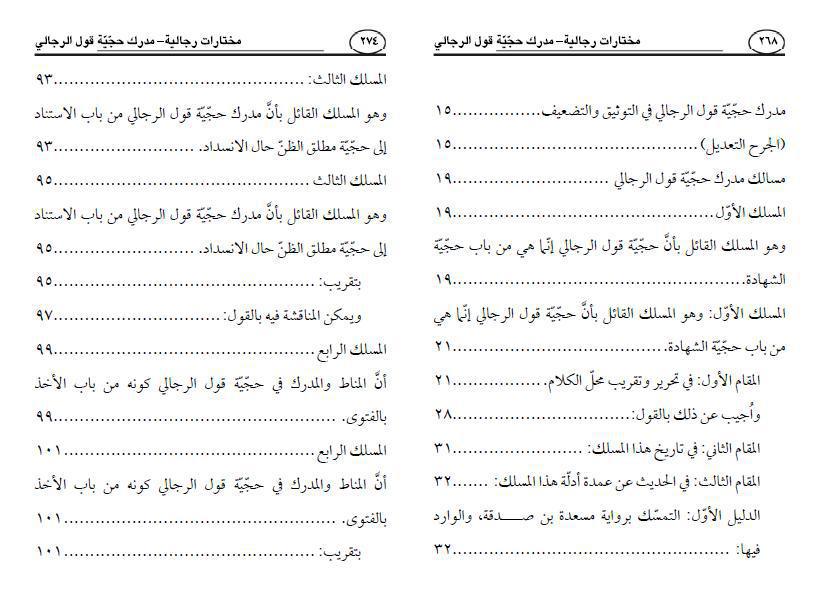 ٢٦٨ مختارات رجالية– مدرك حجّيّة قول الرجالي
مدرك حجّيّة قول الرجالي في التوثيق والتضعيف.................١٥
(الجرح التعديل)..........................................١٥
مسالك مدرك حجّيّة قول الرجالي .............................١٩
المسلك الأوّل.............................................١٩
وهو المسلك القائل بأنَّ حجّيّة قول الرجالي إنّما هي من باب حجّيّة
الشهادة..................................................١٩
المسلك الأوّل: وهو المسلك القائل بأنَّ حجّيّة قول الرجالي إنّما هي
من باب حجّيّة الشهادة....................................٢١
المقام الأول: في تحرير وتقريب محلّ الكلام....................٢١
واُجيب عن ذلك بالقول:..................................٢٨
المقام الثاني: في تاريخ هذا المسلك: .........................٣١
المقام الثالث: في الحديث عن عمدة أدلّة هذا المسلك: .......٣٢
الدليل الأوّل: التمسّك برواية مسعدة بن صـــدقة، والوارد
فيها: ...................................................٣٢
٢٧٤ مختارات رجالية– مدرك حجّيّة قول الرجالي
المسلك الثالث: ...........................................٩٣
وهو المسلك القائل بأنَّ مدرك حجّيّة قول الرجالي من باب الاستناد
إلى حجّيّة مطلق الظنّ حال الانسداد. ..........................٩٣
المسلك الثالث ............................................٩٥
وهو المسلك القائل بأنَّ مدرك حجّيّة قول الرجالي من باب الاستناد
إلى حجّيّة مطلق الظنّ حال الانسداد. ..........................٩٥
بتقريب: .................................................٩٥
ويمكن المناقشة فيه بالقول: ................................٩٧
المسلك الرابع .............................................٩٩
أنَّ المناط والمدرك في حجّيّة قول الرجالي كونه من باب الأخذ
بالفتوى. .................................................٩٩
المسلك الرابع............................................١٠١
أنَّ المناط والمدرك في حجّيّة قول الرجالي كونه من باب الأخذ
بالفتوى. ................................................١٠١
بتقريب: ................................................١٠١